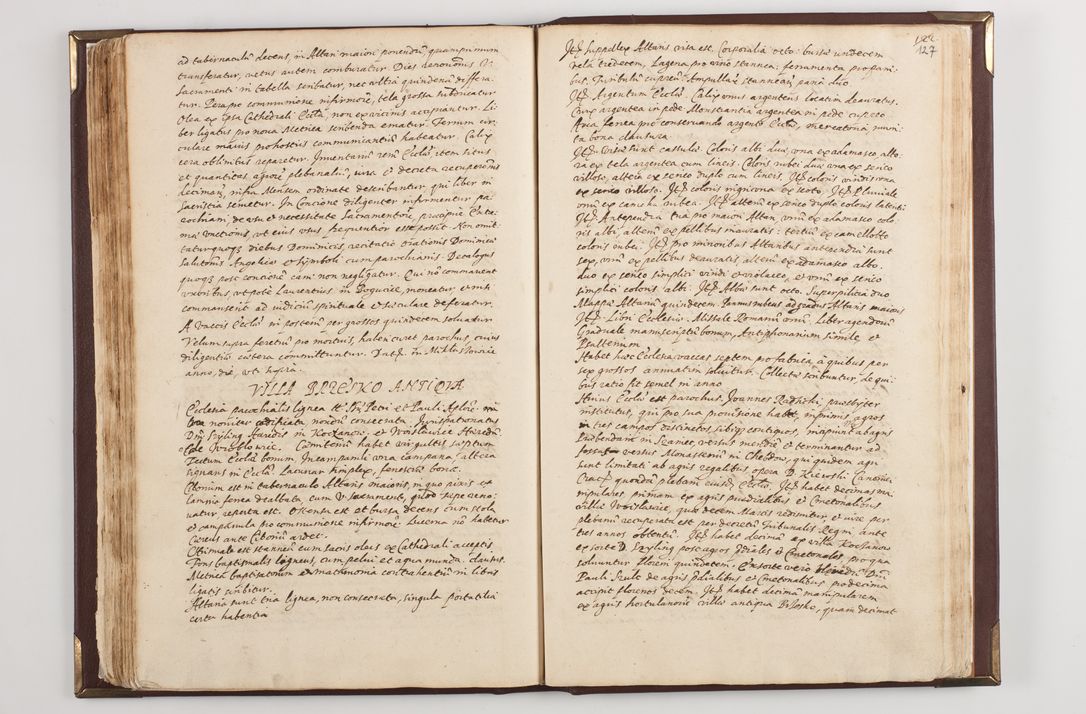 ad tabernaculũ decens, in Altari maiori ponendũ quamprimum
transferatur, vetus autem comburatur. Dies
Sacramenti in tabella scribatur, nec ultra quindenã differa-
tur. Perapto communione infirmorũ, tela grossa subducatur
Olea ex ipsa Cathedrali Eccla, non ex vicinis accipiantur. Li-
ber ligatus pro noua Metrica scribenda ematur. Ferrum cir-
culare maius pro hostiis communicantiũ habeatur. Calix
cera oblinitus reparetur. Inuentariũ rerũ Ecclae item situs
et quantitas agrorũ plebanaliũ, una et decreta recuperationis
decimarũ, infra Mensem ordinate describantur, qui liber in
Sacristia seruetur. In Concione diligenter informentur pa-
rochiani, de usu et necessitate Sacramentorũ, praecipue Extre-
mae Unctionis, ut eius usus frequentior esse possit. Non omit-
taturquoqz diebus Dominicis, recitatio orationis Dominicae
Salutationis Angelicae et Symboli cum parochianis. Decalogus
quoqz post concionẽ cani non negligatur. Qui nõ commanent
uxoribus, ut pote Laurentius in Bogucice, moneatur, et ni
commanserit ad iudiciũ spirituale et seculare deferatur.
A vaccis Ecclae in posterũ per grossos quindecem soluantur
Velum supra feretrũ pro mortuis, haberi curet parochus, cuius
diligentiae caetera committuntur. Dat. in Mikluszowice
anno, die, ut supra.
VILLA BRZESKO ANTIQUA
Ecclesia parochialis lignea tt. SS. Petri et Pauli Aplorũ
nouiter aedificata nondũ consecrata Iurispatronatus
Dni Szyling Haeredis in Koczanow et Woislawice Haeredũ
et de Wroblowic. Cemiteriũ habet virgultis septum
Tectum Ecclae bonum. In campanili una campana altera
signans in Eccla. Lacunar simplex, fenestrae bonae.
Ciborium est in tabernaculo Altaris maioris, in quo pixis ex
lamina ferrea dealbata cum V. Sacramento, quod saepe reno-
uatur reperta est. Ostensa est et bursa decens cum stola
et campanula pro communione infirmorũ. Lucerna nõ habetur
Cereus ante Ciboriũ ardet.
Chrismale est stanneũ cum sacris oleis ex Cathedrali acceptis.
Fons baptismalis ligneus, cum pelui et aqua munda, clausus.
Metrica baptizatorum et matrimonia contrahentiũ in libris
ligatis scribitur.
Altaria sunt tria lignea, non consecrata, singula portatilia
certa habentia
127
Itẽ supellex Altaris visa est. Corporalia octo: bursae undecem
vela tredecem, Lagena pro vino stannea: ferramenta pro pani-
bus, Turibulũ cupreũ: Ampullarũ stannearũ paria duo
Itẽ Argentum Ecclae. Calix unus argenteus locatim deauratus.
Crux argentea in pede. Monstrantia argentea in pede cupreo.
Arca ferrea pro conseruando argento Ecclae, nec ratoria
ta bona clausura
Itẽ Visae sunt casulae. Coloris albi duae, una ex adamasco, alte-
ra ex tela argentea cum lineis. Coloris rubei duae una ex serico
villoso, altera ex serico duplo cum lineis, Itẽ coloris viridis una
ex serico villoso. Itẽ coloris nigri una ex sexto. Itẽ Pluviale
unũ ex cancha rubea. Itẽ alterũ ex serico duplo coloris lateriti
Itẽ Antependia tria pro maiori Altari, unũ ex adamasco colo-
ris albi, alterũ ex pellibus inauratis: tertiũ ex camellotto
coloris rubei: Itẽ pro minoribus Altaribus antependia sunt
sex, unũ ex pellibus deauratis, alterũ ex adamasco albo.
duo ex serico simplici viridi et violaceo, et unũ ex serico
simplici coloris albi. Itẽ Albae sunt octo. Superpellicia duo
Mappae Altariũ quindecem. Pannus rubeus ad gradus Altaris maioris
Itẽ Libri Ecclesiae. Missale Romanũ unũ. Liber agendorũ
Graduale manuscriptũ bonum, Antiphonarium simile, et
Psalterium
Habet haec Ecclesia vaccas septem pro fabrica, à quibus per
sex grossos annuatim soluitur. Collectae scribuntur, de qui-
bus ratio fit semel in anno
Huius Ecclae est parochus, Ioannes Radoski, presbyter
institutus, qui pro sua prouisione habet inprimis agros
in tres campos distinctos sibiqz contiguos, incipiunt ab agris
Praebendariũ in Kamiec, versus meridiẽ et terminantur ad
fossatũ versus Monasteriũ in Chebdow, qui quidem agri
sunt limitati ab agris regalibus opera D. Kierski Canonici
Cracũ quondã plebani eiusdẽ Ecclae. Itẽ habet decimas ma-
nipulares primam ex agris praedialibus et Cmetonalibus
villae Woislawice, quae decem Marcis redimitur, et iure per
plebanũ recuperata est per decretũ Tribunalis Regni, ante
tres annos obtentũ. Itẽ habet decimã ex villa Koczanow
ex sorte D. Szyling post agros praediales et Cmetonales, pro qua
soluuntur floreni quindetem. Ex sorte vero Haeredũ Dni
Pauli Szulc de agris praedialibus et Cmetonalibus pro decima
accipit florenos decem. Itẽ habet decimã manipularem
ex agris hortulanorũ villae antiquae Brzesko, quam decimat